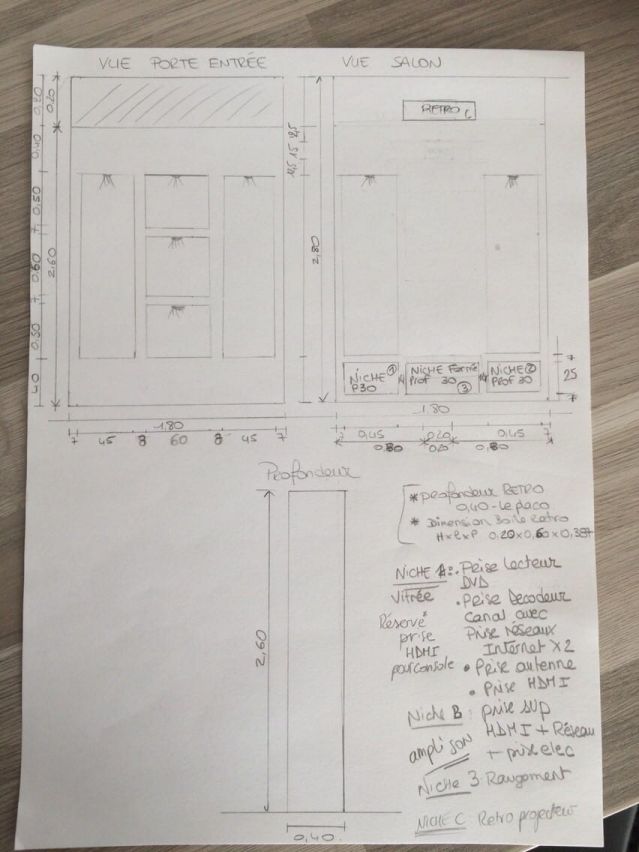 VUE PORTE ENTRÉE
VUE SALON
0.20
0.20
0.40
0.50
7
0.60
7
0.50
40
2,60
2,80
RETRO C
NICHE 1
P30
NICHE Fermé
Prof 30 3
NICHE 2
Prof 30
7
25
7
1.80
7 45 8 60 8 45 7
1.80
7 0,45 0,20 0,45 7
0,80 0,20 0,80
Profondeur
2,60
0.40
* profondeur RETRO
0,40 - le placo
* Dimension Boite Retro
H x L x P 0.20 x 0,60 x 0,387
NICHE A : . Prise Lecteur
DVD
Vitrée . Prise Decodeur
Canal avec
Réservé Prise réseaux
prise Internet x 2
HDMI
pour console . Prise antenne
. Prise HDMI
Niche B : prise sup
HDMI + Réseau
ampli son + prise elec
Niche 3 Rangement
NICHE C Retro projecteur